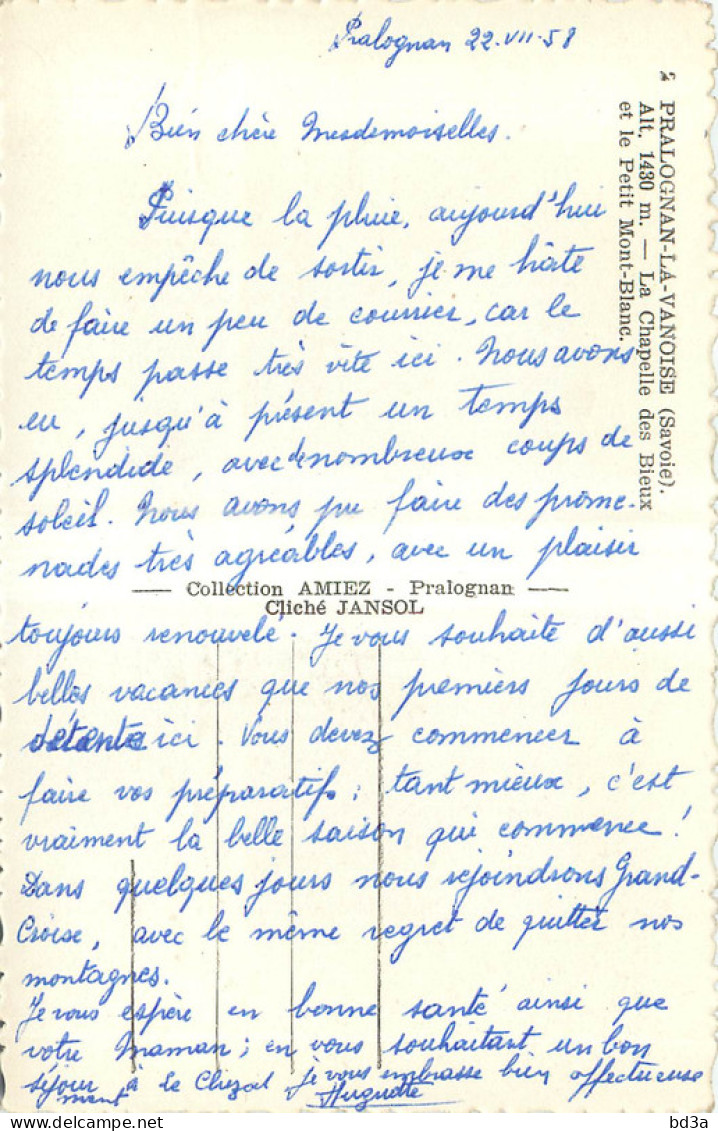 Pralognan 22.VII.58
2 PRALOGNAN-LA-VANOISE (Savoie).
Alt. 1430 m. — La Chapelle des Bieux
et le Petit Mont-Blanc.
Bien chère Mesdemoiselles.
Puisque la pluie, aujourd'hui
nous empêche de sortir, je me hâte
de faire un peu de courrier, car le
temps passe très vite ici. Nous avons
eu, jusqu'à présent un temps
splendide, avec de nombreux coups de
soleil. Nous avons pu faire des prome-
nades très agréables, avec un plaisir
— Collection AMIEZ - Pralognan —
Cliché JANSOL
toujours renouvelé. Je vous souhaite d'aussi
belles vacances que nos premiers jours de
détente ici. Vous devez commencer à
faire vos préparatifs; tant mieux, c'est
vraiment la belle saison qui commence!
Dans quelques jours nous rejoindrons Grand-
Croise, avec le même regret de quitter nos
montagnes.
Je vous espère en bonne santé ainsi que
votre Maman; en vous souhaitant un bon
séjour à le je vous embrasse bien affectueuse
ment Huguette
bd3a